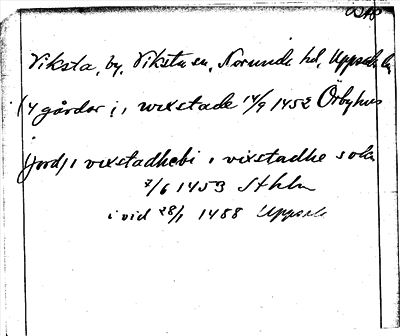 Viksta, by, Viksta sn, Norunda hd, Uppsala län
(4 gårdar i) i wixstade 14/9 1452 Örbyhus
(jord) i vixstadhebi i vixstadhe sokn
7/6 1453 Sthlm
i vid 28/1 1488 Uppsala